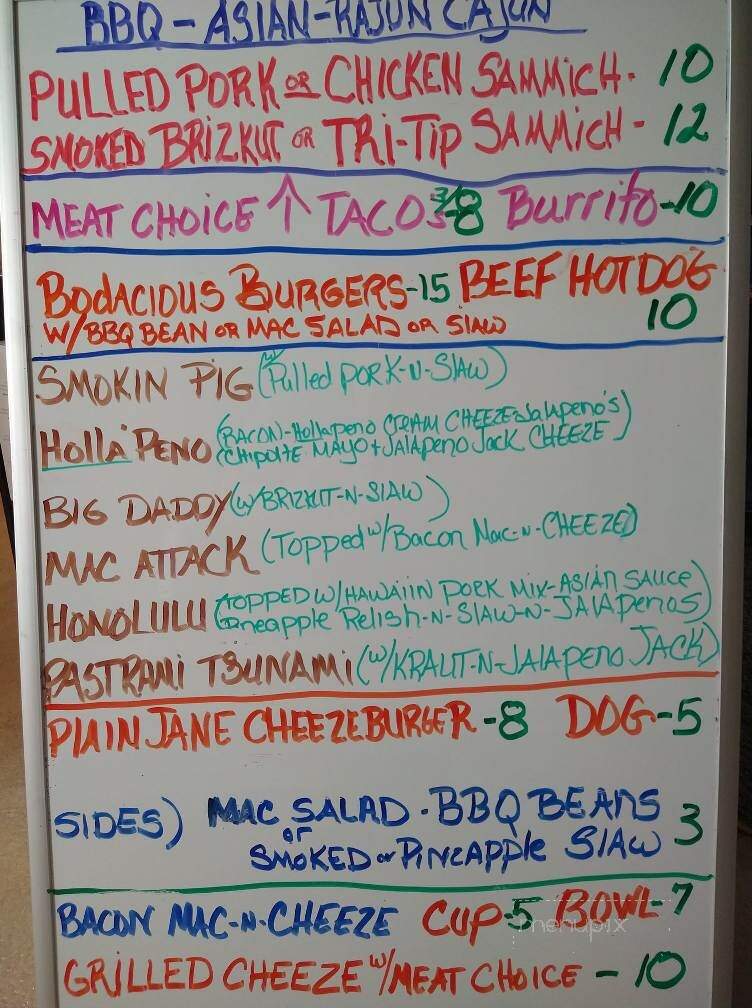 BBQ - ASIAN - KAJUN CAJUN
PULLED PORK OR CHICKEN SAMMICH - 10
SMOKED BRIZKUT OR TRI-TIP SAMMICH - 12
MEAT CHOICE ↑ TACOS 3/8 Burrito - 10
BODACIOUS BURGERS - 15 BEEF HOT DOG
W/ BBQ BEAN OR MAC SALAD OR SLAW 10
SMOKIN PIG (w/ Pulled PORK-N-SLAW)
HOLLA'PENO (BACON)-Hollapeno CREAM CHEEZE & Jalapeno's)
(CHIPOLTE MAYO + JALAPENO JACK CHEEZE
BIG DADDY (W/BRIZKUT-N-SLAW)
MAC ATTACK (Topped w/ Bacon Mac-N-CHEEZE)
HONOLULU (TOPPED W/ HAWAIIN PORK MIX-ASIAN SAUCE
Pineapple Relish-N-SLAW-N-JALAPENOS)
PASTRAMI TSUNAMI (W/KRAUT-N-JALAPENO JACK)
PLAIN JANE CHEEZEBURGER - 8 DOG - 5
SIDES) MAC SALAD - BBQ BEANS 3
or
SMOKED or PINEAPPLE SLAW
BACON MAC-N-CHEEZE CUP - 5 BOWL - 7
menupix
GRILLED CHEEZE W/ MEAT CHOICE - 10